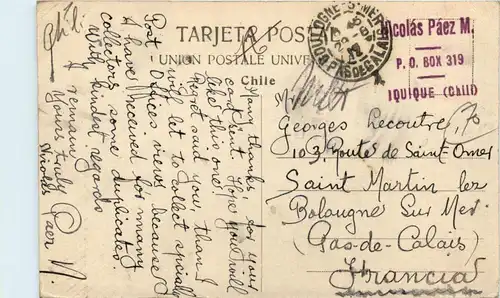 Chili
TARJETA POSTAL
UNION POSTALE UNIVER
Chile
BOULOGNE-S-MER
PAS DE CALAIS
Nicolás Páez M.
P. O. BOX 319
IQUIQUE (CHILI)
Many thanks, for your
card sent. Hope you will
like this one!
I must said you, than I
will let to collect specially
Post Offices views because
I have received for many
collectors some duplicates.
With kindest regards
I remain
Yours truly
Nicolás Paez M.
Mr
Georges Lecoutre,
103, Route de Saint-Omer
Saint Martin lez
Bolougne Sur Mer.
(Pas-de-Calais)
Francia